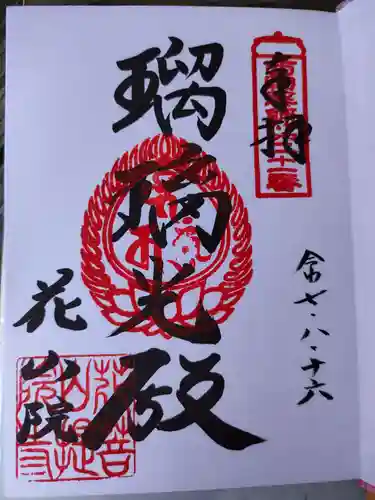 奉拝
令七・八・十六
瑠璃光殿
花山院